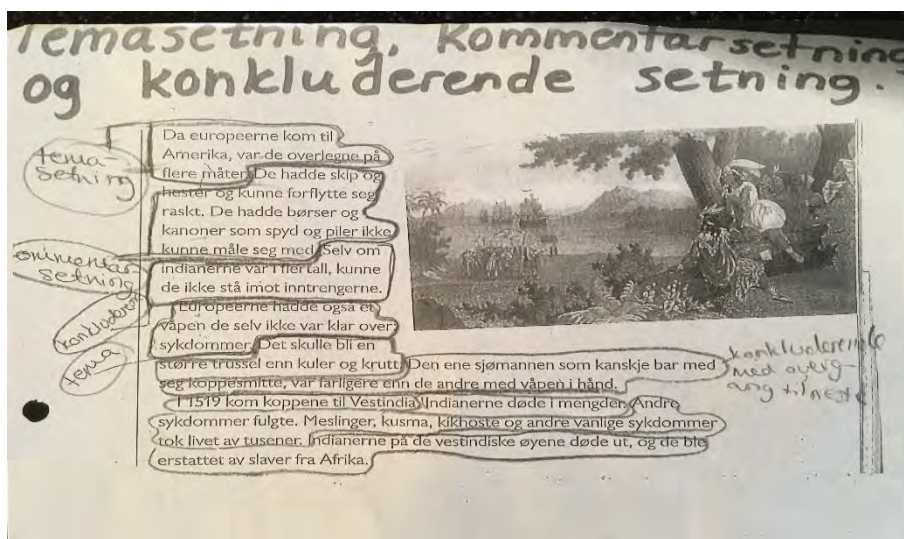 Temasetning, kommentarsetning
og konkluderende setning.
tema-
setning
Da europeerne kom til
Amerika, var de overlegne på
flere måter. De hadde skip og
hester og kunne forflytte seg
raskt. De hadde børser og
kanoner som spyd og piler ikke
kunne måle seg med. Selv om
indianerne var i flertall, kunne
de ikke stå imot inntrengerne.
Europeerne hadde også et
våpen de selv ikke var klar over
sykdommer. Det skulle bli en
større trussel enn kuler og krutt. Den ene sjømannen som kanskje bar med
seg koppesmitte, var farligere enn de andre med våpen i hånd.
I 1519 kom koppene til Vestindia. Indianerne døde i mengder. Andre
sykdommer fulgte. Meslinger, kusma, kikhoste og andre vanlige sykdommer
tok livet av tusener. Indianerne på de vestindiske øyene døde ut, og de ble
erstattet av slaver fra Afrika.
setning
tema
med
til